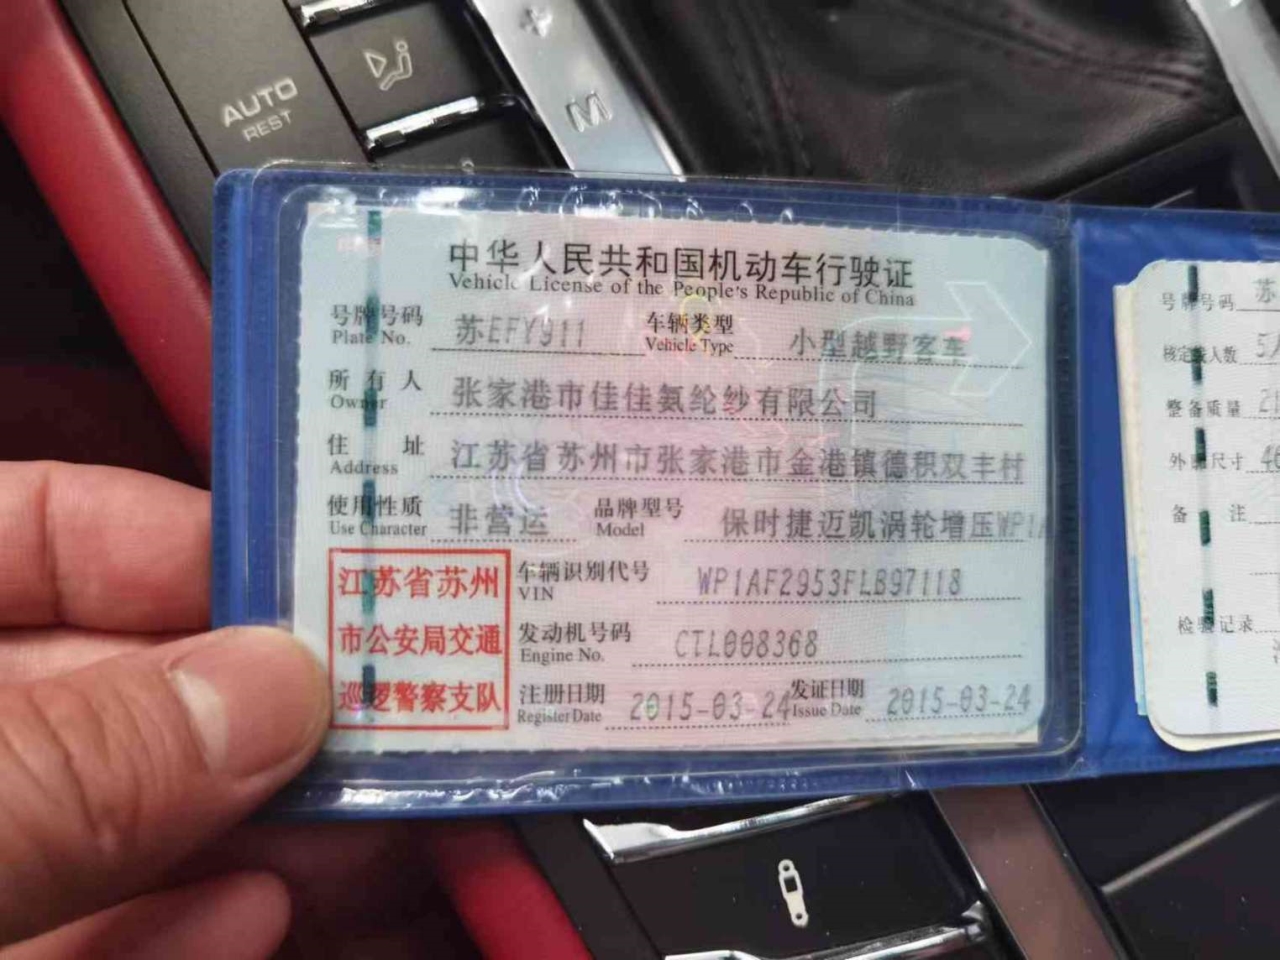 AUTO
REST
+
M
中华人民共和国机动车行驶证
Vehicle License of the People's Republic of China
号牌号码 苏EFY911 车辆类型 小型越野客车
Plate No. Vehicle Type
所有人 张家港市佳佳氨纶纱有限公司
Owner
住址 江苏省苏州市张家港市金港镇德积双丰村
Address
使用性质 非营运 品牌型号 保时捷迈凯涡轮增压WP1
Use Character Model
江苏省苏州
市公安局交通
巡逻警察支队
车辆识别代号 WP1AF2953FLB97118
VIN
发动机号码 CTL008368
Engine No.
注册日期 2015-03-24 发证日期 2015-03-24
Register Date Issue Date
号牌号码 苏
核定载人数 5人
整备质量 2
外廓尺寸 46
备注
检验记录